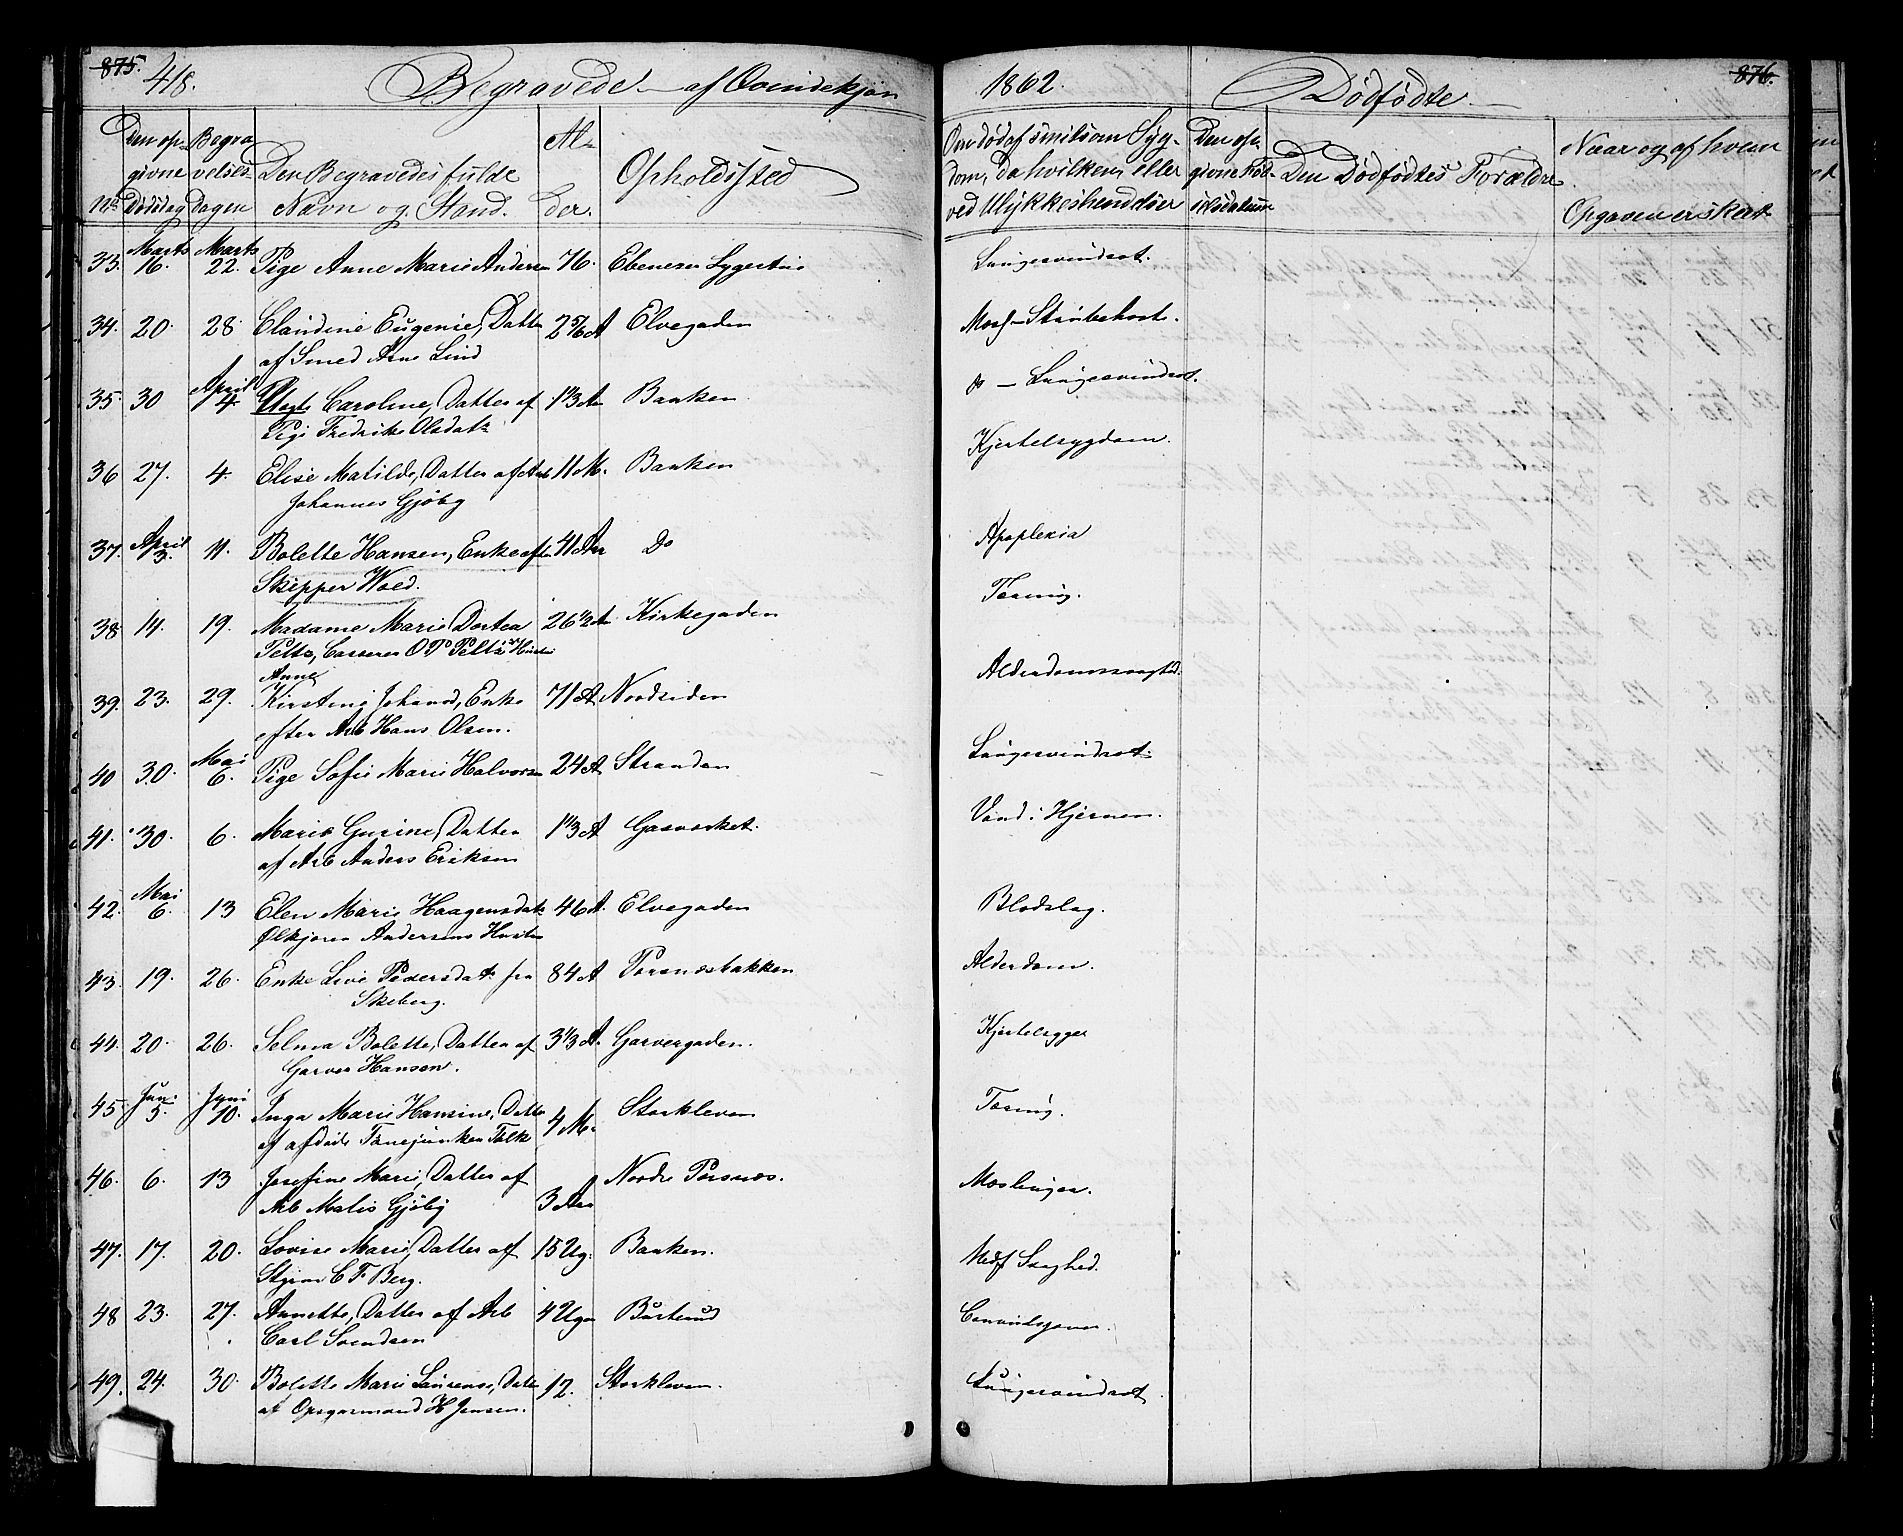 875.
418. Begravede af Qvindekjøn 1862. Dødfødte. 876.
No
Den opgivne Dødsdag
Begravelses-dagen
Den Begravedes fulde Navn og Stand.
Alder.
Opholdssted
Om død af smitsom Sygdom, da hvilken, eller ved Ulykkeshendelser
Den Dødfødtes Forældre.
Naar og af hvem Opgaven er skeet
33. Marts 16. Marts 22. Pige Anne Marie Andersen 76. Ebeneser Lungesvindsot.
34. 20. 28. Claudine Eugenie, Datter 2 5/6 A Elvegaden Strubehoste.
af Smed Arne Lind
35. 30 April 4. Caroline, Datter af 1 1/3 A Banken do - Lungesvindsot.
Pige Fredrikke Olsdatr
36 27. 4. Elise Matilde, Datter af Arb 11 M. Banken Kjertelsygdom.
Johannes Gjøby
37. April 3. 11. Bolette Hansen, Enke efter 41 Aar Do Apoplexia
Skipper Wold.
38. 14. 19. Madame Marie Dortea 26 1/2 A Kirkegaden Tæring.
Peltz, Casserer O P Peltz's Hustru
Anne
39. 23. 29. Kirstine Johansd, Enke 71 A Nordsiden Alderdomssvaghed.
efter Arb Hans Olsen.
40 30. Mai 6. Pige Sofie Marie Halvorsen 24 A Stranden Lungesvindsot.
41. 30. 6. Maria Gurine, Datter 1 1/3 A Gasverket. Vand i Hjernen.
af Arb Anders Eriksen
42. Mai 6. 13 Elen Marie Haagensdatr 46 A. Elvegaden Blodslag.
Ølkjører Andersens Hustru
43. 19. 26. Enke Live Pedersdatr fra 84 A Torsnæsbakken Alderdom.
Skeberg.
44. 20. 26. Selma Bolette, Datter af 3 1/3 A. Garvergaden. Kjertelsyge
Garver Hansen.
45. Juni 5. Juni 10. Inga Marie Hansine, Datter 4 M. Storkleven Tæring.
af afdøde Falk
46. 6. 13 Josefine Marie, Datter af 3 Aar Nordre Torsnæs. Mæslinger.
Arb Matis Gjøby
47. 17. 20. Lovise Marie, Datter af 15 Ug. Banken. Medf Svaghed.
Styrm C F Berg.
48 23. 27. Annette, Datter af Arb 4 Uger Busterud
Carl Svendsen
49. 24. 30. Bolette Marie Laurense, Datter 12. Storkleven. Lungesvindsot.
af Opsynsmand H Jensen.